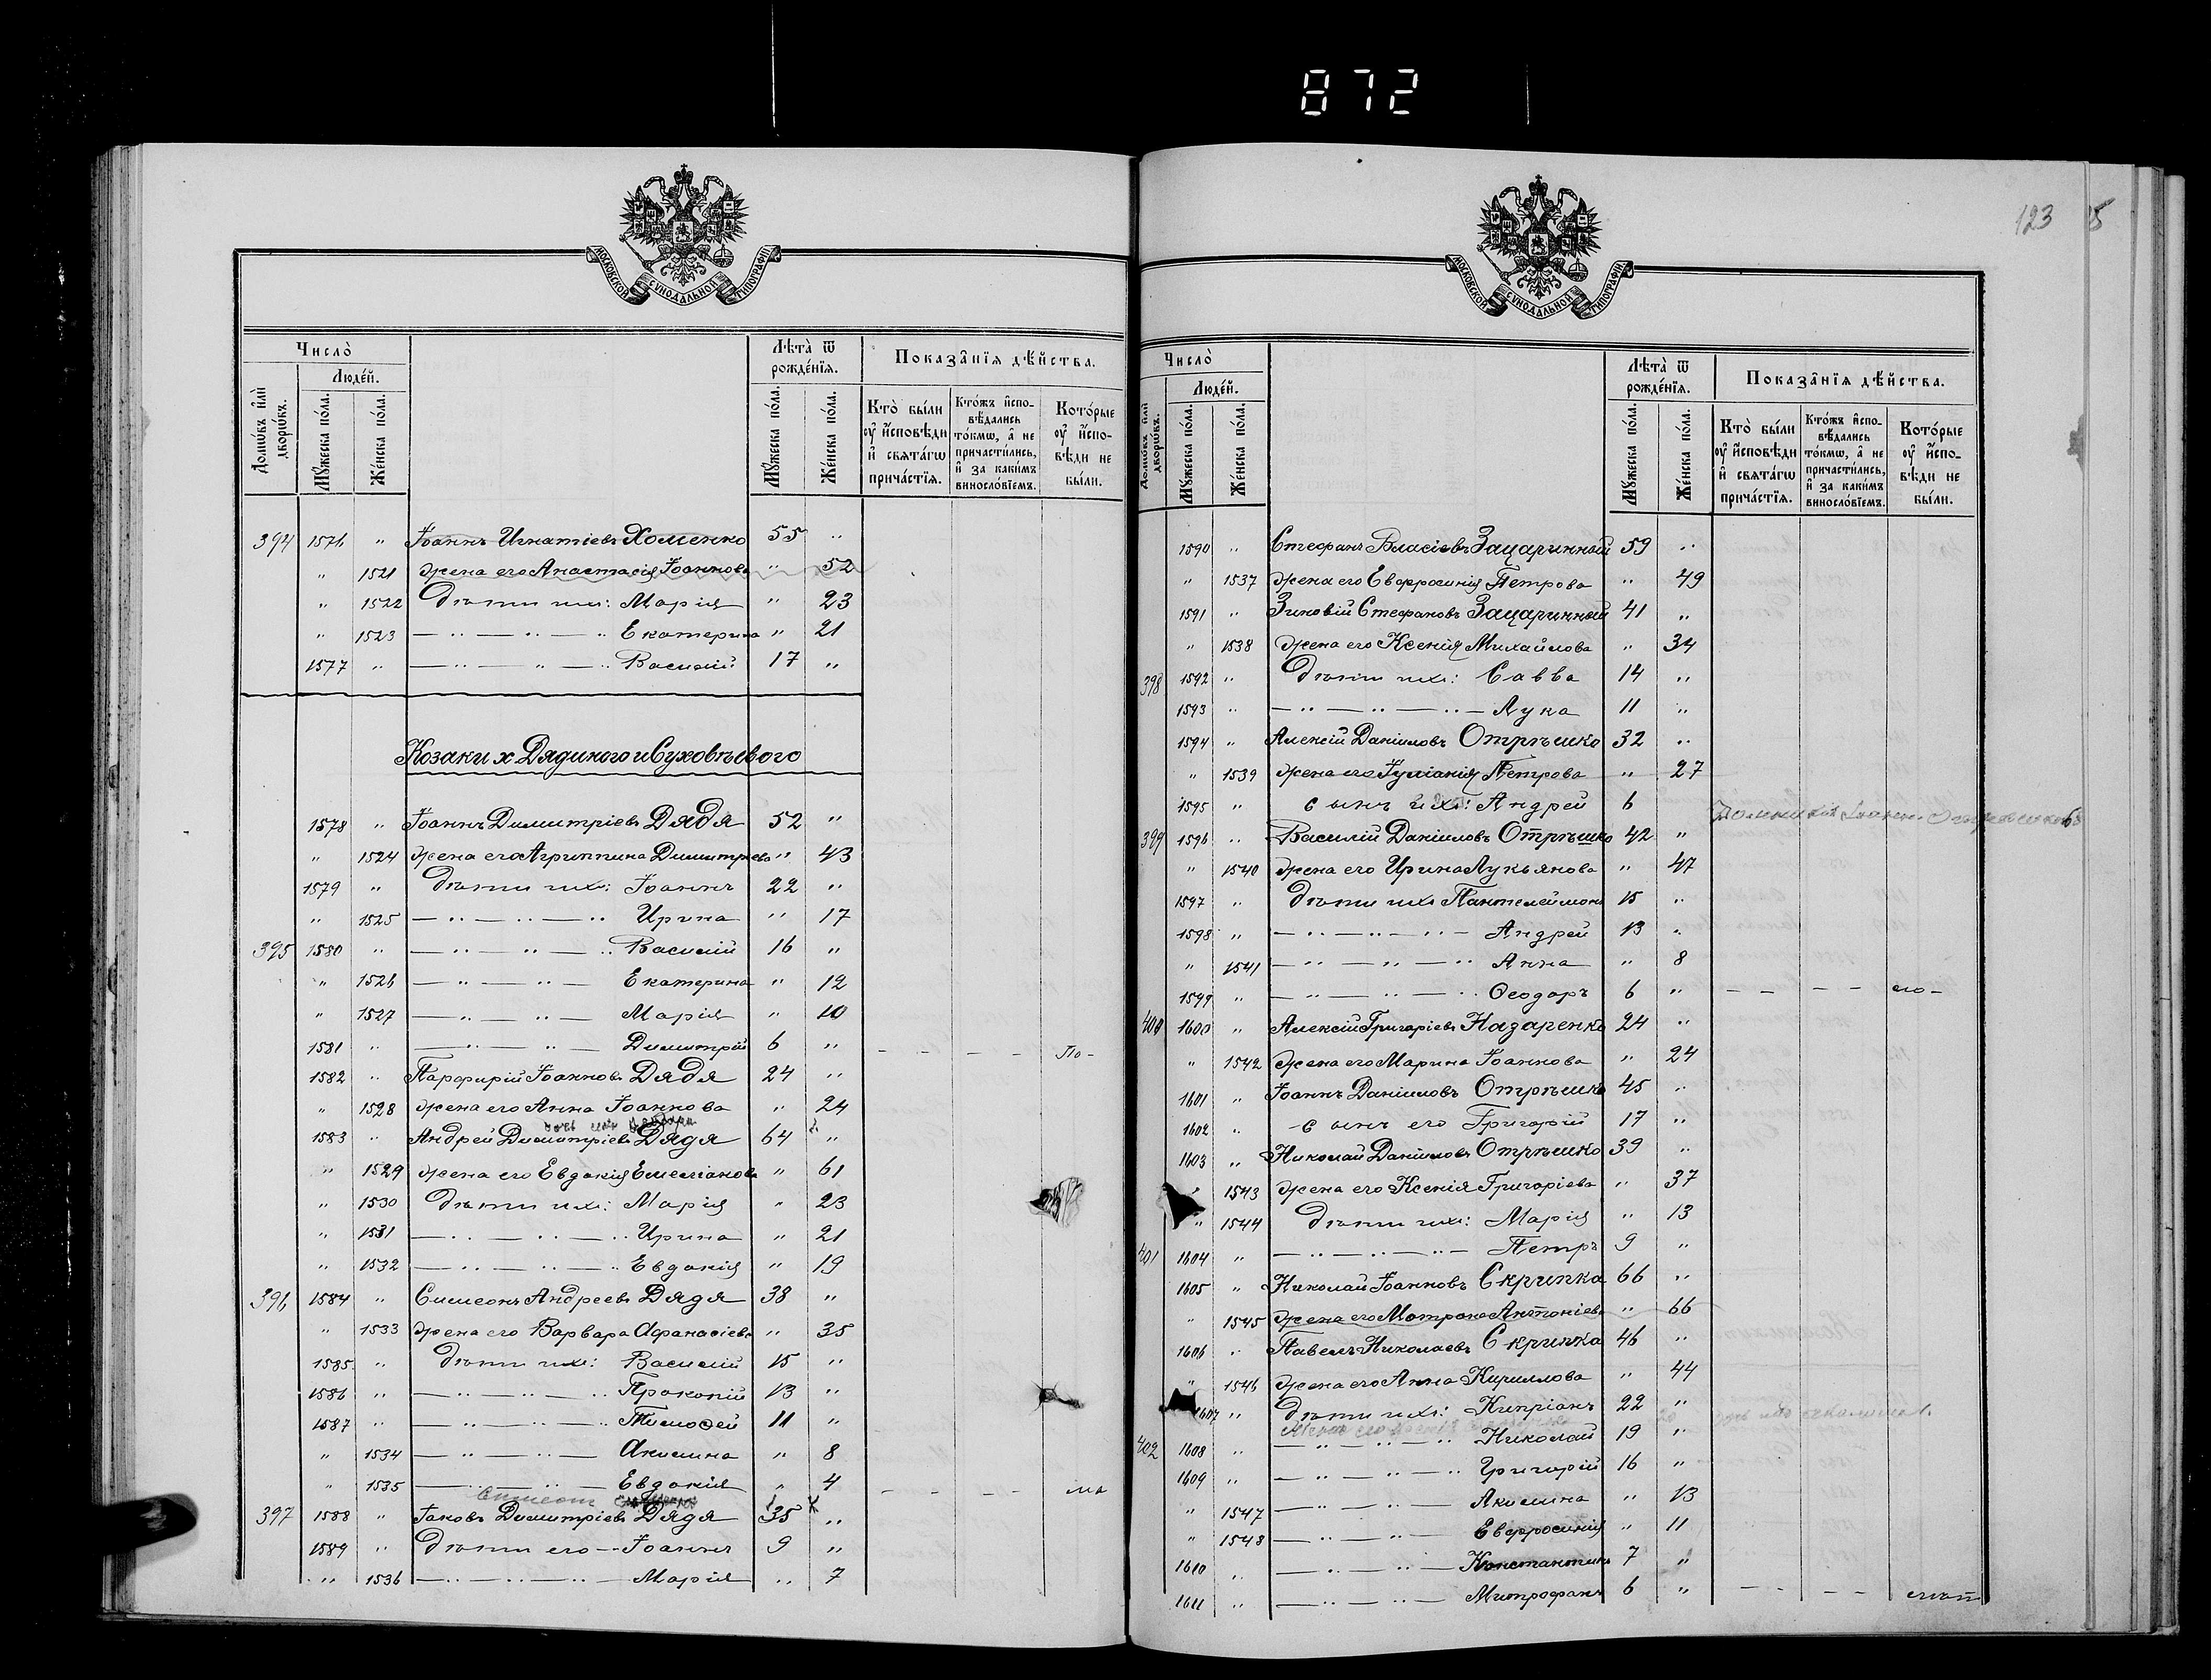 872
123
5
МОСКОВСКОЙ СУНОДАЛЬНОЙ ТИПОГРАФІИ
Число̀
Людей.
Домѡвъ и҆лѝ дворѡвъ.
Мꙋжеска по́ла.
Же́нска по́ла.
Лѣта̀ ѿ рожде́нїѧ.
Мꙋжеска по́ла.
Же́нска по́ла.
Показа̑нїѧ дѣ́йства.
Кто̀ бы́ли ᲂу҆ и҆́сповѣди и҆ свѧта́гѡ прича́стїѧ.
Кто́жъ и҆спо-вѣ́дались то́кмѡ, а҆ не причасти́лись, и҆ за каки́мъ винослѡ́вїемъ.
Кото́рые ᲂу҆ и҆́спо-вѣди не бы́ли.
394 1576 " Іоаннъ Игнатіевъ Хоменко 55 "
" 1521 жена его Анастасія Іоаннова " 52
" 1522 дѣти ихъ: Марія " 23
" 1523 — " — " — " Екатерина " 21
1577 " — " — " — " Василій 17 "
Козаки х Дядиного и Суховѣевого
1578 " Іоаннъ Димитріевъ Дядя 52 "
" 1524 жена его Агриппина Димитріева " 43
1579 " дѣти ихъ: Іоаннъ 22 "
" 1525 — " — " — " Ирина " 17
395 1580 " — " — " — " Василій 16 "
" 1526 — " — " — Екатерина " 12
" 1527 — " — " — Марія " 10
1581 " — " — " — Димитрій 6 " - - - -
1582 " Парфирій Іоанновъ Дядя 24 "
" 1528 жена его Анна Іоаннова " 24
1583 " Андрей Димитріевъ Дядя 64 "
" 1529 жена его Евдокія Емеліанова " 61
" 1530 дѣти ихъ: Марія " 23
" 1531 — " — " — " Ирина " 21
" 1532 — " — " — " Евдокія " 19
396 1584 " Симеонъ Андреевъ Дядя 38 "
" 1533 жена его Варвара Афанасіева " 35
1585 " дѣти ихъ: Василій 15 "
1586 " — " — " — " Прокопій 13 "
1587 " — " — " — " Тимоѳей 11 "
" 1534 — " — " — Акилина " 8
" 1535 — " — " — Евдокія " 4 - - - -
397 1588 " Іаковъ Димитріевъ Дядя 35 "
1589 " дѣти его — Іоаннъ 9 "
" 1536 — " — " — " — Марія " 7
МОСКОВСКОЙ СУНОДАЛЬНОЙ ТИПОГРАФІИ
Число̀
Людей.
Домѡвъ и҆лѝ дворѡвъ.
Мꙋжеска по́ла.
Же́нска по́ла.
Лѣта̀ ѿ рожде́нїѧ.
Мꙋжеска по́ла.
Же́нска по́ла.
Показа̑нїѧ дѣ́йства.
Кто̀ бы́ли ᲂу҆ и҆́сповѣди и҆ свѧта́гѡ прича́стїѧ.
Кто́жъ и҆спо-вѣ́дались то́кмѡ, а҆ не причасти́лись, и҆ за каки́мъ винослѡ́вїемъ.
Кото́рые ᲂу҆ и҆́спо-вѣди не бы́ли.
1590 " Стефанъ Власіевъ Зацаринный 59 "
" 1537 жена его Евфросинія Петрова " 49
1591 " Зиновій Стефановъ Зацаринный 41 "
" 1538 жена его Ксенія Михайлова " 34
398 1592 " дѣти ихъ: Савва 14 "
1593 " — " — " — " — Лука 11 "
1594 " Алексій Даніиловъ Отрѣшко 32 "
" 1539 жена его Іуліанія Петрова " 27
1595 " сынъ ихъ: Андрей 6
399 1596 " Василій Даніиловъ Отрѣшко 42 "
" 1540 жена его Ирина Лукьянова " 47
1597 " дѣти ихъ Пантелеймонъ 15 "
1598 " — " — " — " — Андрей 13 "
" 1541 — " — " — " Анна " 8
1599 " — " — " — " Ѳеодоръ 6 " - - - -
400 1600 " Алексій Григоріевъ Назаренко 24 "
" 1542 жена его Марина Іоаннова " 24
1601 " Іоаннъ Даніиловъ Отрѣшко 45 "
1602 " сынъ его Григорій 17 "
1603 " Николай Даніиловъ Отрѣшко 39 "
" 1543 жена его Ксенія Григоріева " 37
" 1544 дѣти ихъ: Марія " 13
401 1604 " — " — " — " — Петръ 9 "
1605 " Николай Іоанновъ Скрипка 66 "
" 1545 жена его Матрона Антоніева " 66
1606 " Павелъ Николаевъ Скрипка 46 "
" 1546 жена его Анна Кириллова " 44
1607 " дѣти ихъ: Кипріанъ 22 "
402 1608 " — " — " — " Николай 19 "
1609 " — " — " — " Григорій 16 "
" 1547 — " — " — Акилина " 13
" 1548 — " — " — Евфросинія " 11
1610 " — " — " — Константинъ 7 "
1611 " — " — " — Митрофанъ 6 " - - - -